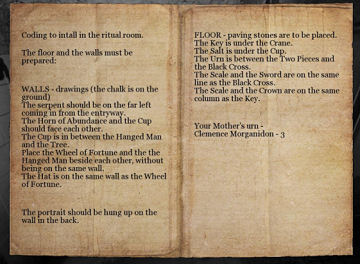 Coding to intall in the ritual room.
The floor and the walls must be
prepared:
WALLS - drawings (the chalk is on the
ground)
The serpent should be on the far left
coming in from the entryway.
The Horn of Abundance and the Cup
should face each other.
The Cup is in between the Hanged Man
and the Tree.
Place the Wheel of Fortune and the the
Hanged Man beside each other, without
being on the same wall.
The Hat is on the same wall as the Wheel
of Fortune.
The portrait should be hung up on the
wall in the back.
FLOOR - paving stones are to be placed.
The Key is under the Crane.
The Salt is under the Cup.
The Urn is between the Two Pieces and
the Black Cross.
The Scale and the Sword are on the same
line as the Black Cross.
The Scale and the Crown are on the same
column as the Key.
Your Mother's urn -
Clemence Morganidon - 3